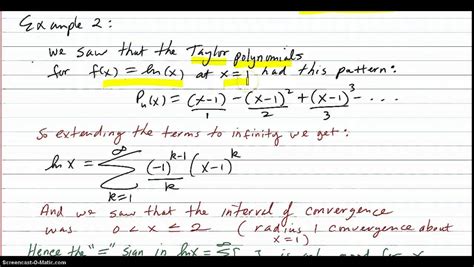 Example 2:
We saw that the Taylor polynomials
for f(x) = ln(x) at x=1 had this pattern:
Pn(x) = (x-1)/1 - (x-1)²/2 + (x-1)³/3 - ...
So extending the terms to infinity we get:
ln x = ∑_{k=1}^{∞} (-1)^{k-1}/k (x-1)^k
And we saw that the interval of convergence
was 0 < x ≤ 2 (radius 1 convergence about
x=1)
Hence the "=" sign in ln x = ∑ is good for x
Screencast-O-Matic.com